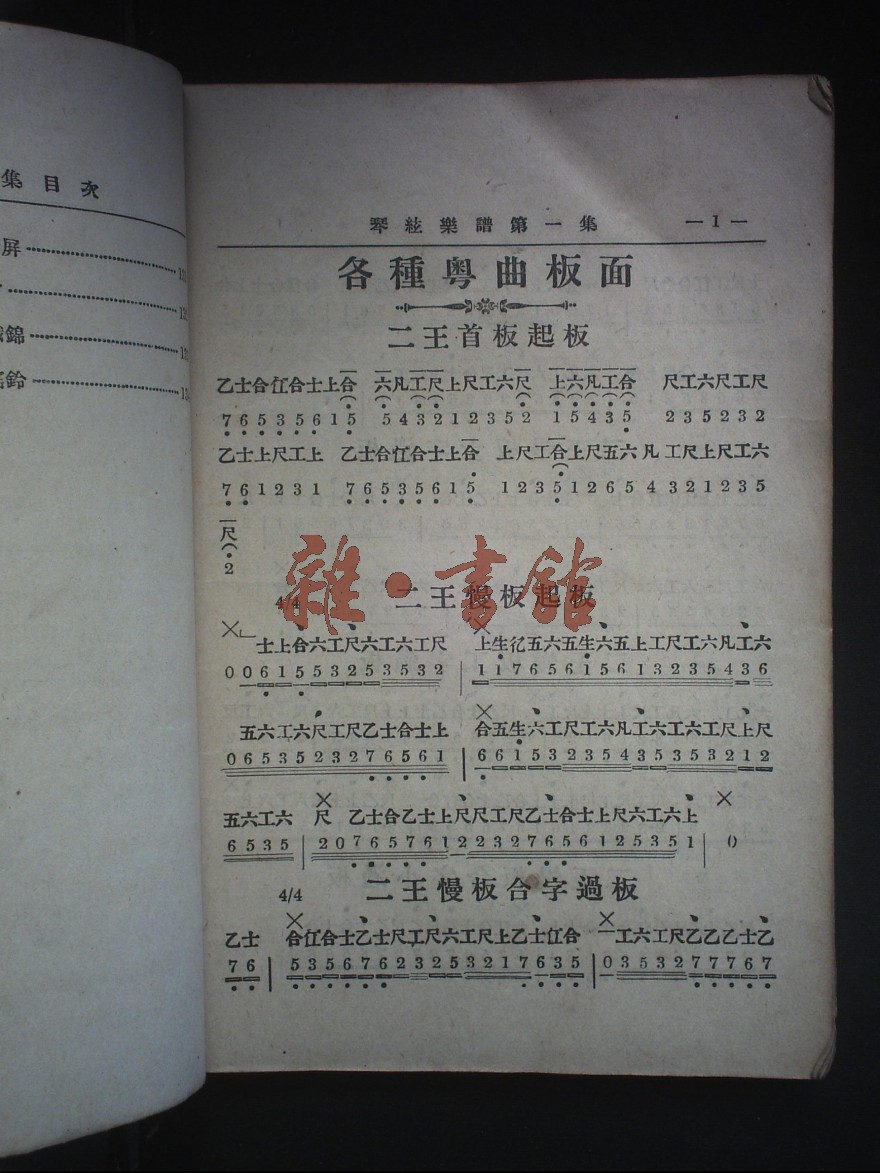 集目次
屏
錦
鈴
琴絃樂譜第一集 —1—
各種粵曲板面
二王首板起板
乙士合仜合士上合 六凡工尺上尺工六尺 上六凡工合 尺工六尺工尺
7 6 5 3 5 6 1 5 5 4 3 2 1 2 3 5 2 1 5 4 3 5 2 3 5 2 3 2
乙士上尺工上 乙士合仜合士上合 上尺工合上尺五六凡工尺上尺工六
7 6 1 2 3 1 7 6 5 3 5 6 1 5 1 2 3 5 1 2 6 5 4 3 2 1 2 3 5
尺
2
雜·書館
4/4 二王慢板起板
士上合六工尺六工六工尺 上生仩五六五生六五上工尺工六凡工六
0 0 6 1 5 5 3 2 5 3 5 3 2 1 1 7 6 5 6 1 5 6 1 3 2 3 5 4 3 6
五六工六尺工尺乙士合士上 合五生六工尺工六凡工六工六工尺上尺
0 6 5 3 5 2 3 2 7 6 5 6 1 6 6 1 5 3 2 3 5 4 3 5 3 5 3 2 1 2
五六工六 尺 乙士合乙士上尺尺工尺乙士合士上尺六工六上
6 5 3 5 2 0 7 6 5 7 6 1 2 2 3 2 7 6 5 6 1 2 5 3 5 1 0
4/4 二王慢板合字過板
乙士 合仜合士乙士尺工尺六工尺上乙士仜合 工六工尺乙乙乙士乙
7 6 5 3 5 6 7 6 2 3 2 5 3 2 1 7 6 3 5 0 3 5 3 2 7 7 7 6 7